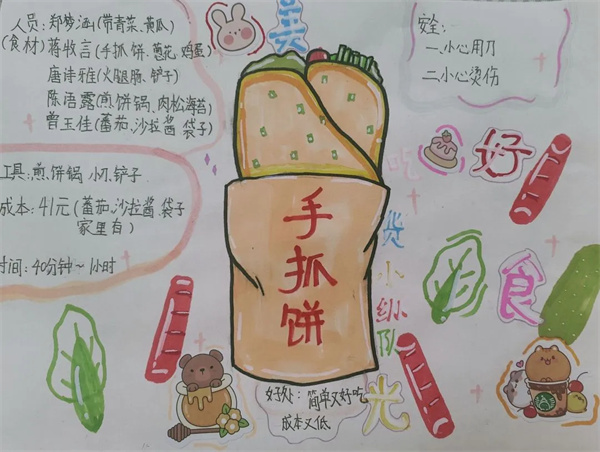 人员:郑梦涵(带青菜、黄瓜)
(食材)蒋收言(手抓饼、葱花、鸡蛋)
唐诗雅(火腿肠、铲子)
陈语露(煎饼锅、肉松海苔)
曾玉佳(番茄、沙拉酱、袋子)
工具:煎饼锅、小刀、铲子
成本:41元(番茄、沙拉酱、袋子
家里有)
时间:40分钟~1小时
手抓饼
美好食光
吃货小纵队
安全:
一.小心用刀
二.小心烫伤
好处:简单又好吃
成本又低